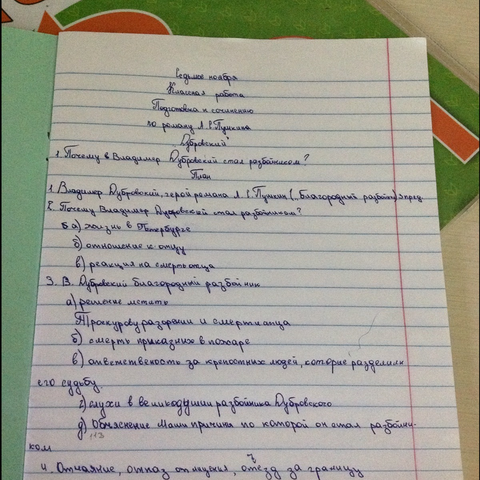 Седьмое ноября
Классная работа
Подготовка к сочинению
по роману А.С.Пушкина
Дубровский"
? Почему в Владимир Дубровский стал разбойником?
План
1. Владимир Дубровский, герой романа А.С.Пушкин (Благородный разбойн)
2. Почему Владимир Дубровский стал разбойником?
а) жизнь в Петербурге
б) отношение к отцу
в) реакция на смерть отца
3. В. Дубровский благородный разбойник
а) решение мстить
Троекурову разорении и смерти отца
б) смерть приказных в пожаре
в) ответственость за крепостных людей, которие разделили
его судьбу
г) слухи в великодушии разбойника Дубровского
д) Обяснение Маши причины по которой он стал разбойни-
ком
4. Отчаяние, отказ от мщения, отъезд за границу